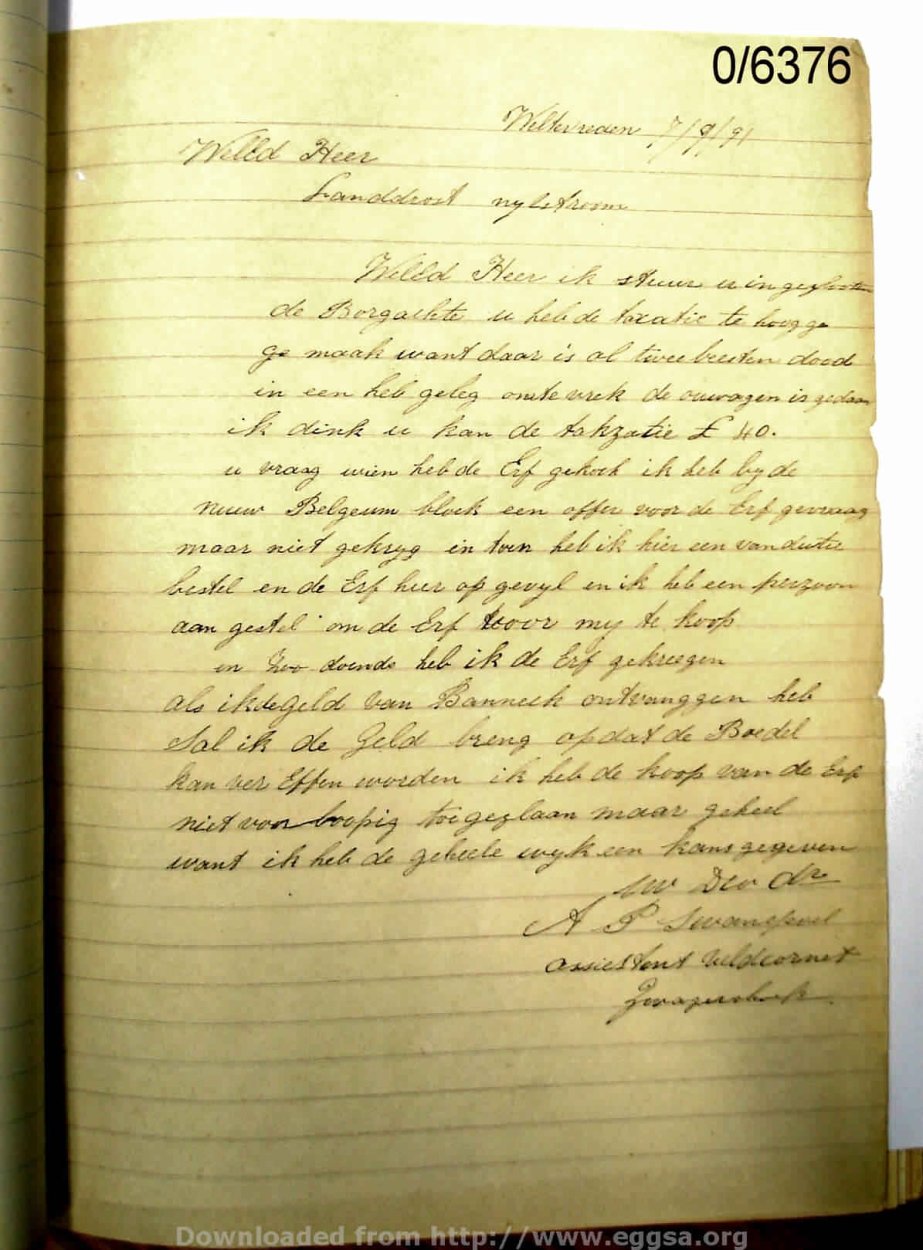 0/6376
Weltevreden 7/9/91
WelEd Heer
Landdrost nylstroom
WelEd Heer ik stuur u in gesloten
de Borgackte u heb de taxatie te hoog ge
ge maak want daar is al twee beesten dood
in een heb geleg om te vrek de ouwagen is gedaan
ik dink u kan de takzatie £ 40.
u vraag wien heb de Erf gekoch ik heb by de
nieuw Belgeum block een offer voor de Erf gevraag
maar niet gekryg en toen heb ik hier een vandutie
bestel en de Erf hier op geveyl en ik heb een perzoon
aan gestel om de Erf voor my te koop
en Zoo doende heb ik de Erf gekreegen
als ik de geld van ontvanggen heb
Sal ik de Geld breng op dat de Boedel
kan ver Effen worden ik heb de koop van de Erf
niet voor loopig toegeslaan maar geheel
want ik heb de geheele wyk een kans gegeven
Uw Dw dr
A P Swanepoel
assiestent veldcornet
Zwagershoek
Downloaded from http://www.eggsa.org